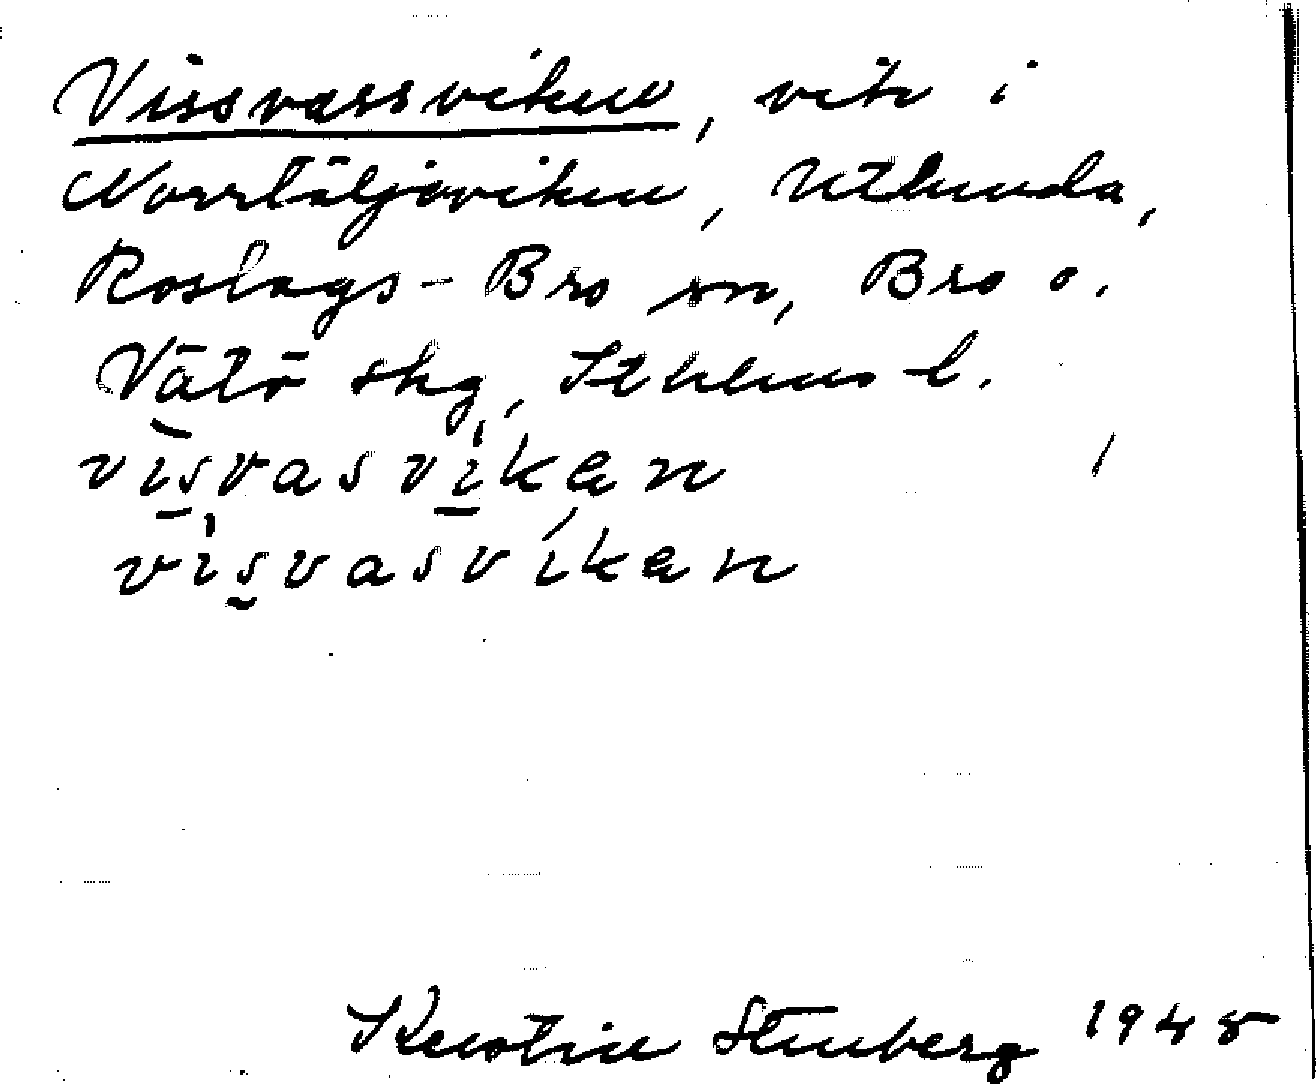 Vissvassviken, vik i
Norrtäljeviken, Utlunda,
Roslags-Bro sn, Bro o.
Vätö skg, Sthlms l.
visvasvikan
visvasvikan
Kerstin Stenberg 1948